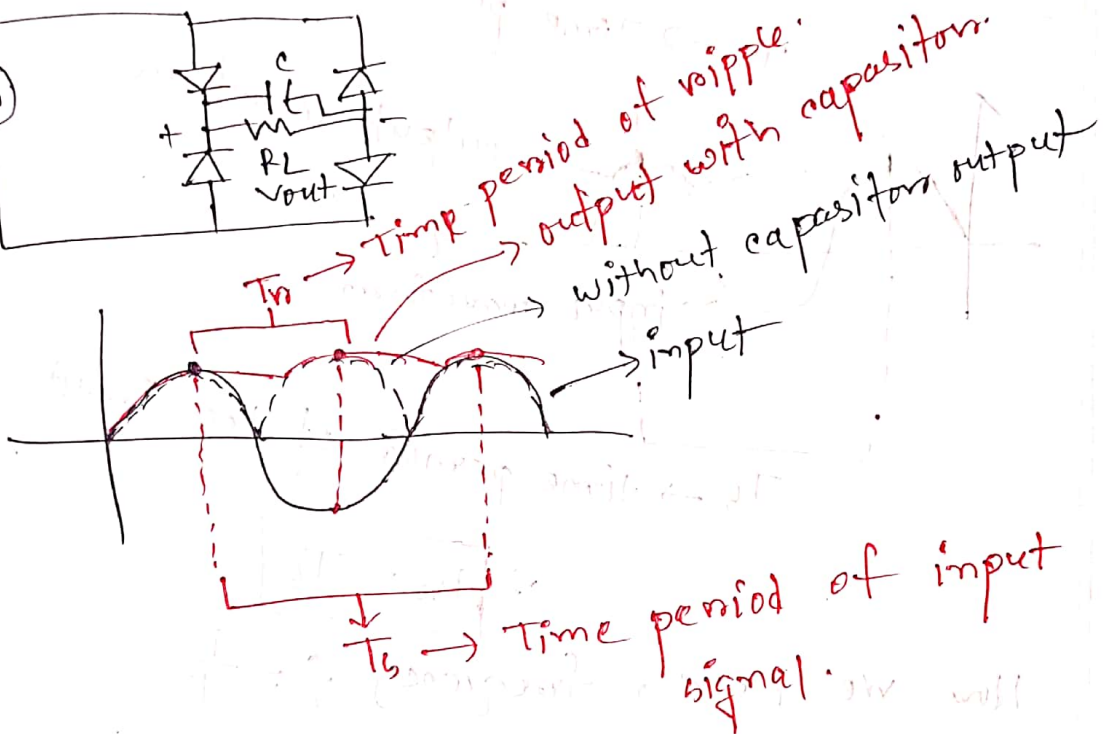 C
+
-
RL
Vout
Tr → Time period of ripple.
→ output with capasitor.
→ without capasitor output
→ input
Ts → Time period of input
signal.